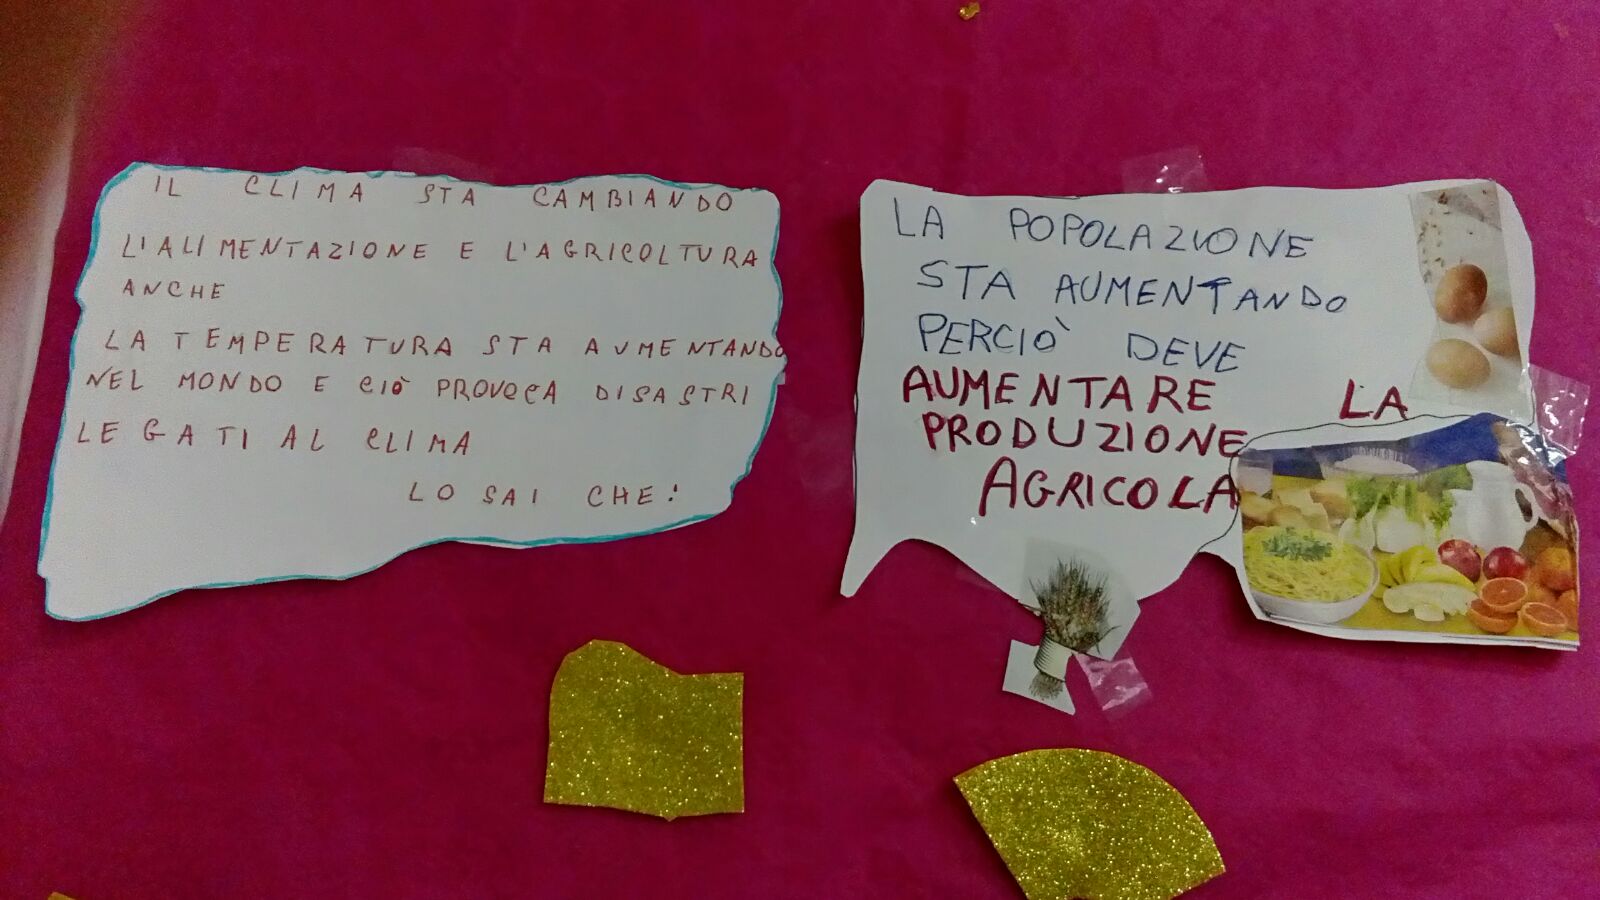 IL CLIMA STA CAMBIANDO
L'ALIMENTAZIONE E L'AGRICOLTURA
ANCHE
LA TEMPERATURA STA AUMENTANDO
NEL MONDO E CIÒ PROVOCA DISASTRI
LEGATI AL CLIMA
LO SAI CHE:
LA POPOLAZIONE
STA AUMENTANDO
PERCIÒ DEVE
AUMENTARE LA
PRODUZIONE
AGRICOLA